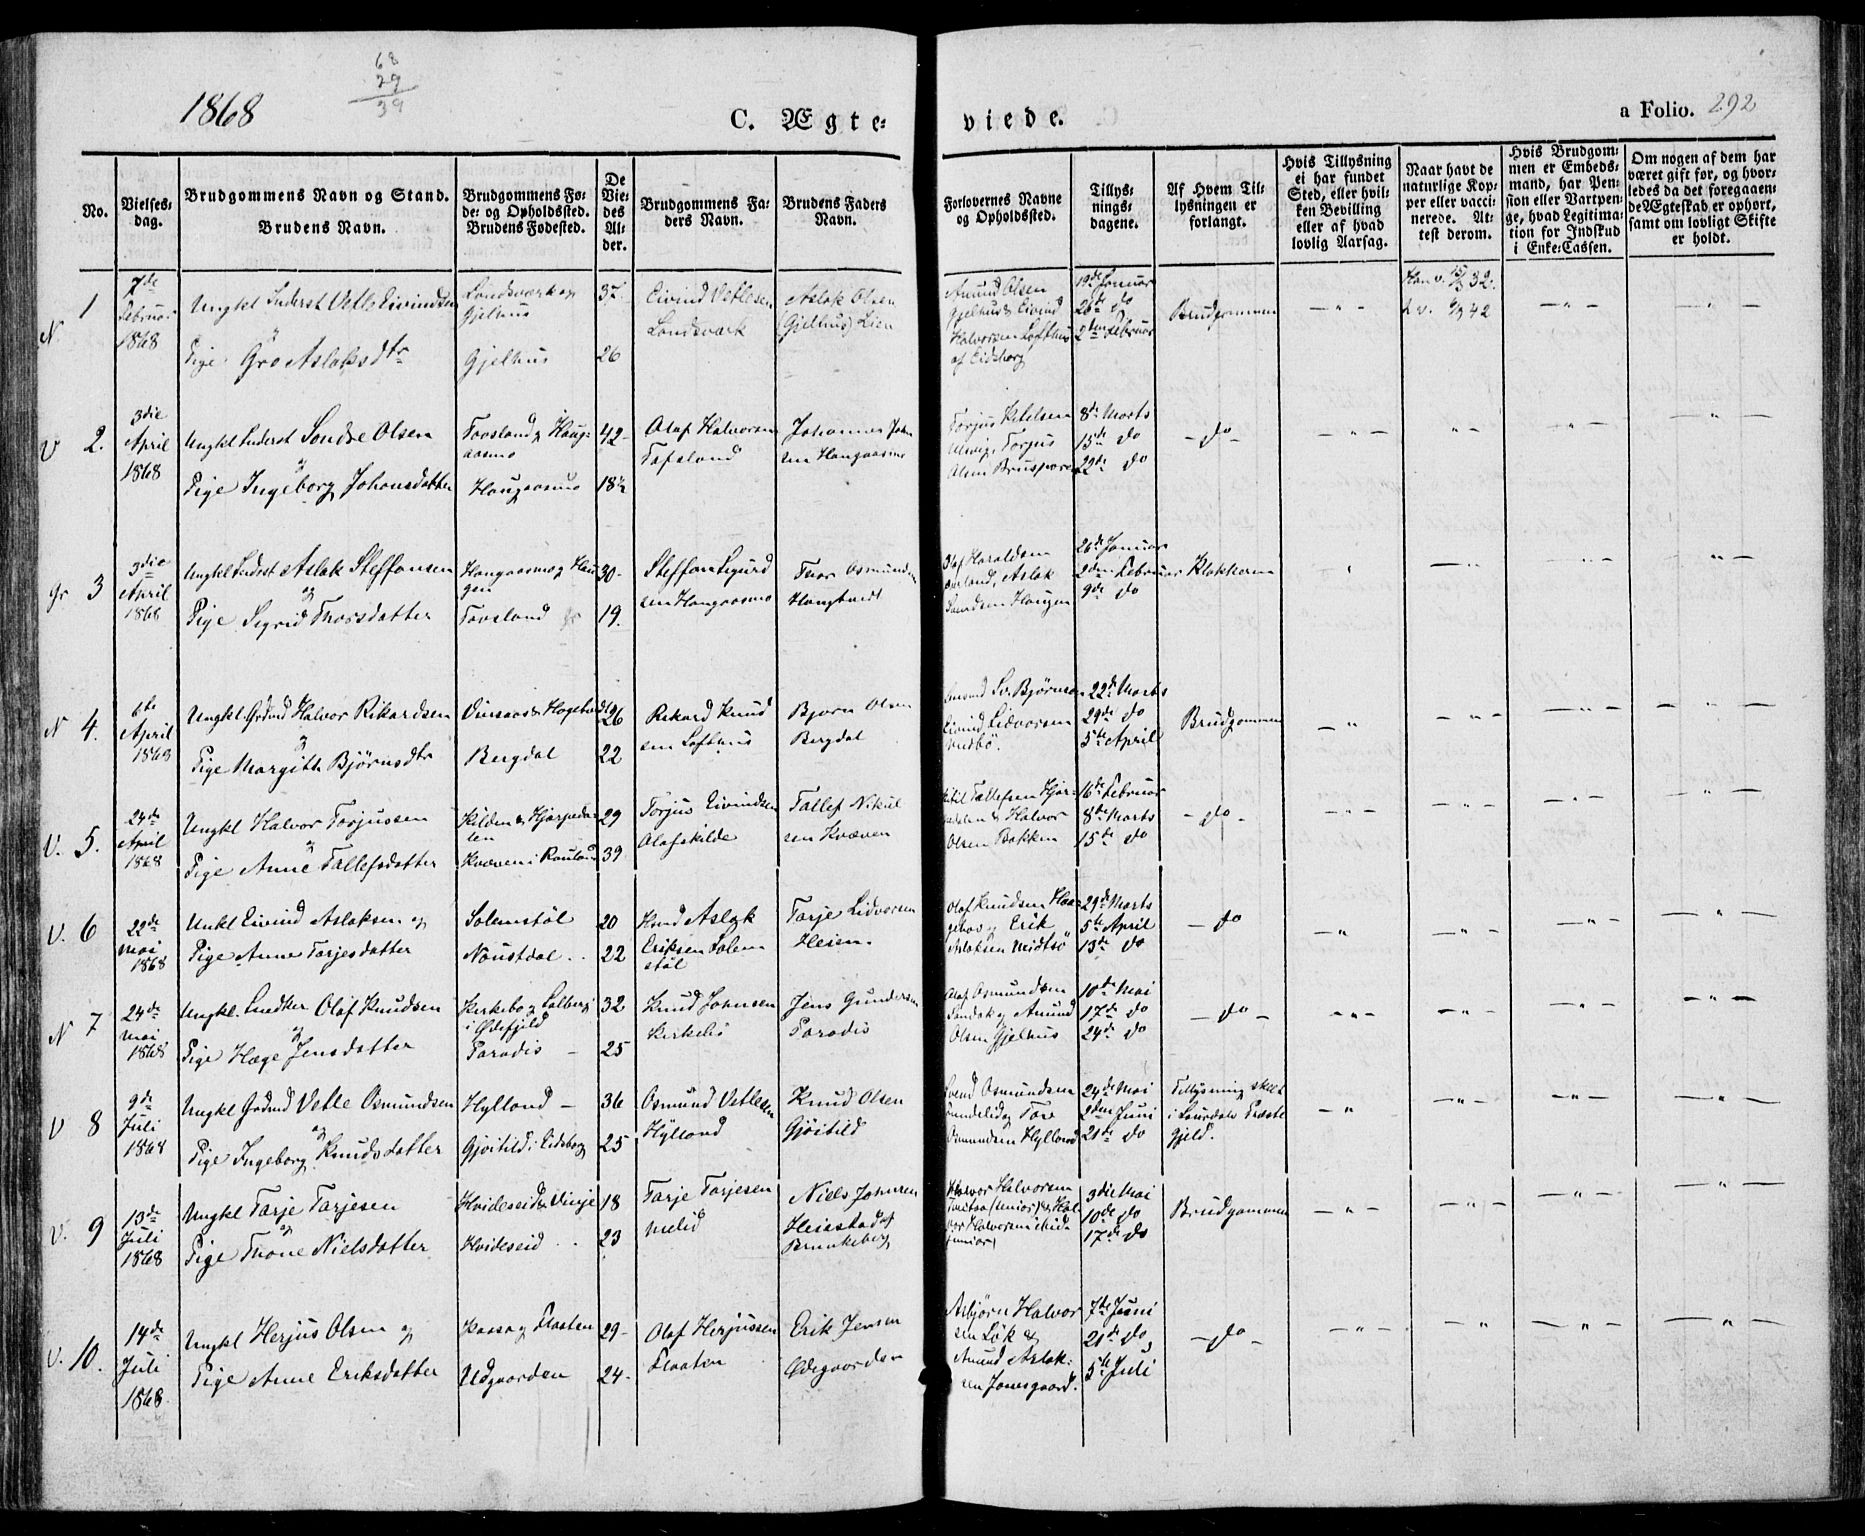 1868
68
29
39
C. Ægte-
viede.
a Folio. 292
No.
Vielses-
dag.
Brudgommens Navn og Stand.
Brudens Navn.
Brudgommens Fø-
de- og Opholdssted.
Brudens Fødested.
De
Vie-
des
Al-
der.
Brudgommens Fa-
ders Navn.
Brudens Faders
Navn.
Forlovernes Navne
og Opholdssted.
Tillys-
nings-
dagene.
Af Hvem Til-
lysningen er
forlangt.
Hvis Tillysning
ei har fundet
Sted, eller hvil-
ken Bevilling
eller af hvad
lovlig Aarsag.
Naar havt de
naturlige Kop-
per eller vacci-
nerede. At-
test derom.
Hvis Brudgom-
men er Embeds-
mand, har Pen-
sion eller Vartpen-
ge, hvad Legitima-
tion for Indskud
i Enke-Cassen.
Om nogen af dem har
været gift før, og hvor-
ledes da det foregaaen-
de Ægteskab er ophørt,
samt om lovligt Skifte
er holdt.
N. 1
7de
Februar
1868
Ungkl Inderst Vetle Eivindsen
og
Pige Gro Aslaksdtr
Londsværk og
Gjelhus
Gjelhus
37.
26
Eivind Vetlesen
Londsværk
Aslak Olsen
Gjelhus Lien
Amund Olsen
Gjelhus & Eivind
Halvorsen Lofthus
af Eidsborg
19de Januar
26de do
2den Februar
Brudgommen
Han v. 32.
H v. 42
V 2.
3die
April
1868
Ungkl Inderst Sondre Olsen
og
Pige Ingeborg Johansdatter
Tovsland & Haug-
aasmo
Haugaasmo
42-
18½
Olaf Halvorsen
Tofsland
Johannes John
sen Haugaasmo
Torjus Kittilsen
Torjus
Olsen
8de Marts
15de do
22de do
-do-
Gr 3
3die
April
1868
Ungkl Inderst Aslak Steffensen
og
Pige Sigrid Thorsdatter
Haugaasmo & Hau-
gen
Tovsland Gr
30-
19.
Steffen Sigurd
sen Haugaasmo
Tvor Osmundsen
Haugtvedt
Olaf Haraldsen
Aslak
Haugen
26de Januar
2den Februar
9de do
Klokkeren
N 4.
6te
April
1868
Ungkl Grdmd Halvor Rikardsen
og
Pige Margith Bjørnsdtr
Bergdal
26
22
Rikard Knud
sen Lofthus
Bjørn Olsen
Bergdal
Eivind Lidvorsen
22de Marts
29de do
5te April
Brudgommen
V. 5.
24de
April
1868
Ungkl Halvor Torjussen
og
Pige Anne Tallefsdatter
Kilden & Hjørneda-
len
Kvæven i Rauland
29
39
Torjus Eivindsen
Olafskilde
Tallef Nikul
sen Kvæven
Tallefsen Hjør-
dalen & Halvor
Olsen Bakken
16de Februar
8de Marts
15de do
-do-
V. 6
22de
Mai
1868
Unkl Eivind Aslaksen og
Pige Anne Tarjesdatter
Solemstøl
Naustdal
20
22
Hmd Aslak
Eriksen Solem
støl
Tarje Lidvorsen
Heien
Olaf Knudsen Haa-
Erik
Aslaksen Midtsø
29de Marts
5te April
13de do
-do
N 7
24de
Mai
1868
Ungkl Olaf Knudsen
og
Pige Hæge Jensdatter
Kirkebø & Solberg
i Ødefjeld
Paradis
32
25
Knud Johnsen
Kirkebø
Jens Gundersen
Paradis
Olaf Osmundsen
Sandok & Amund
Olsen Gjelhus
10de Mai
17de do
24de do
-do-
V 8
9de
Juli
1868
Ungkl Grdmd Vetle Osmundsen
og
Pige Ingeborg Knudsdatter
Hylland
Gjøitild i Eidsborg
36
25
Osmund Vetlesen
Hylland
Knud Olsen
Gjøitild
Svend Osmundsen
Sundelid & Tore
Osmundsen Hylland
24de Mai
2den Juni
21de do
Tillysning skeet
i Laurdals Præste
Gjeld.
V. 9
13de
Juli
1868
Ungkl Tarje Tarjesen
og
Pige Thone Nielsdatter
Hvideseid & Vinje
Hvideseid
18
23
Tarje Tarjesen
Melid
Niels Johnsen
Heiestad af
Brunkeberg
Halvor Halvorsen
(Senior) & Hal-
vor Halvorsen ibid
junior)
3die Mai
10de do
17de do
Brudgommen
V. 10.
14de
Juli
1868
Ungkl Herjus Olsen og
Pige Anne Eriksdatter
Kaasa & Flaaten
Udgaarden
29-
24-
Olaf Herjussen
Flaaten
Erik Jensen
Ødegaarden
Asbjørn Halvor
sen Løk &
Amund Aslak-
sen Jonsgaard.
7de Juni
21de do
5te Juli
-do-